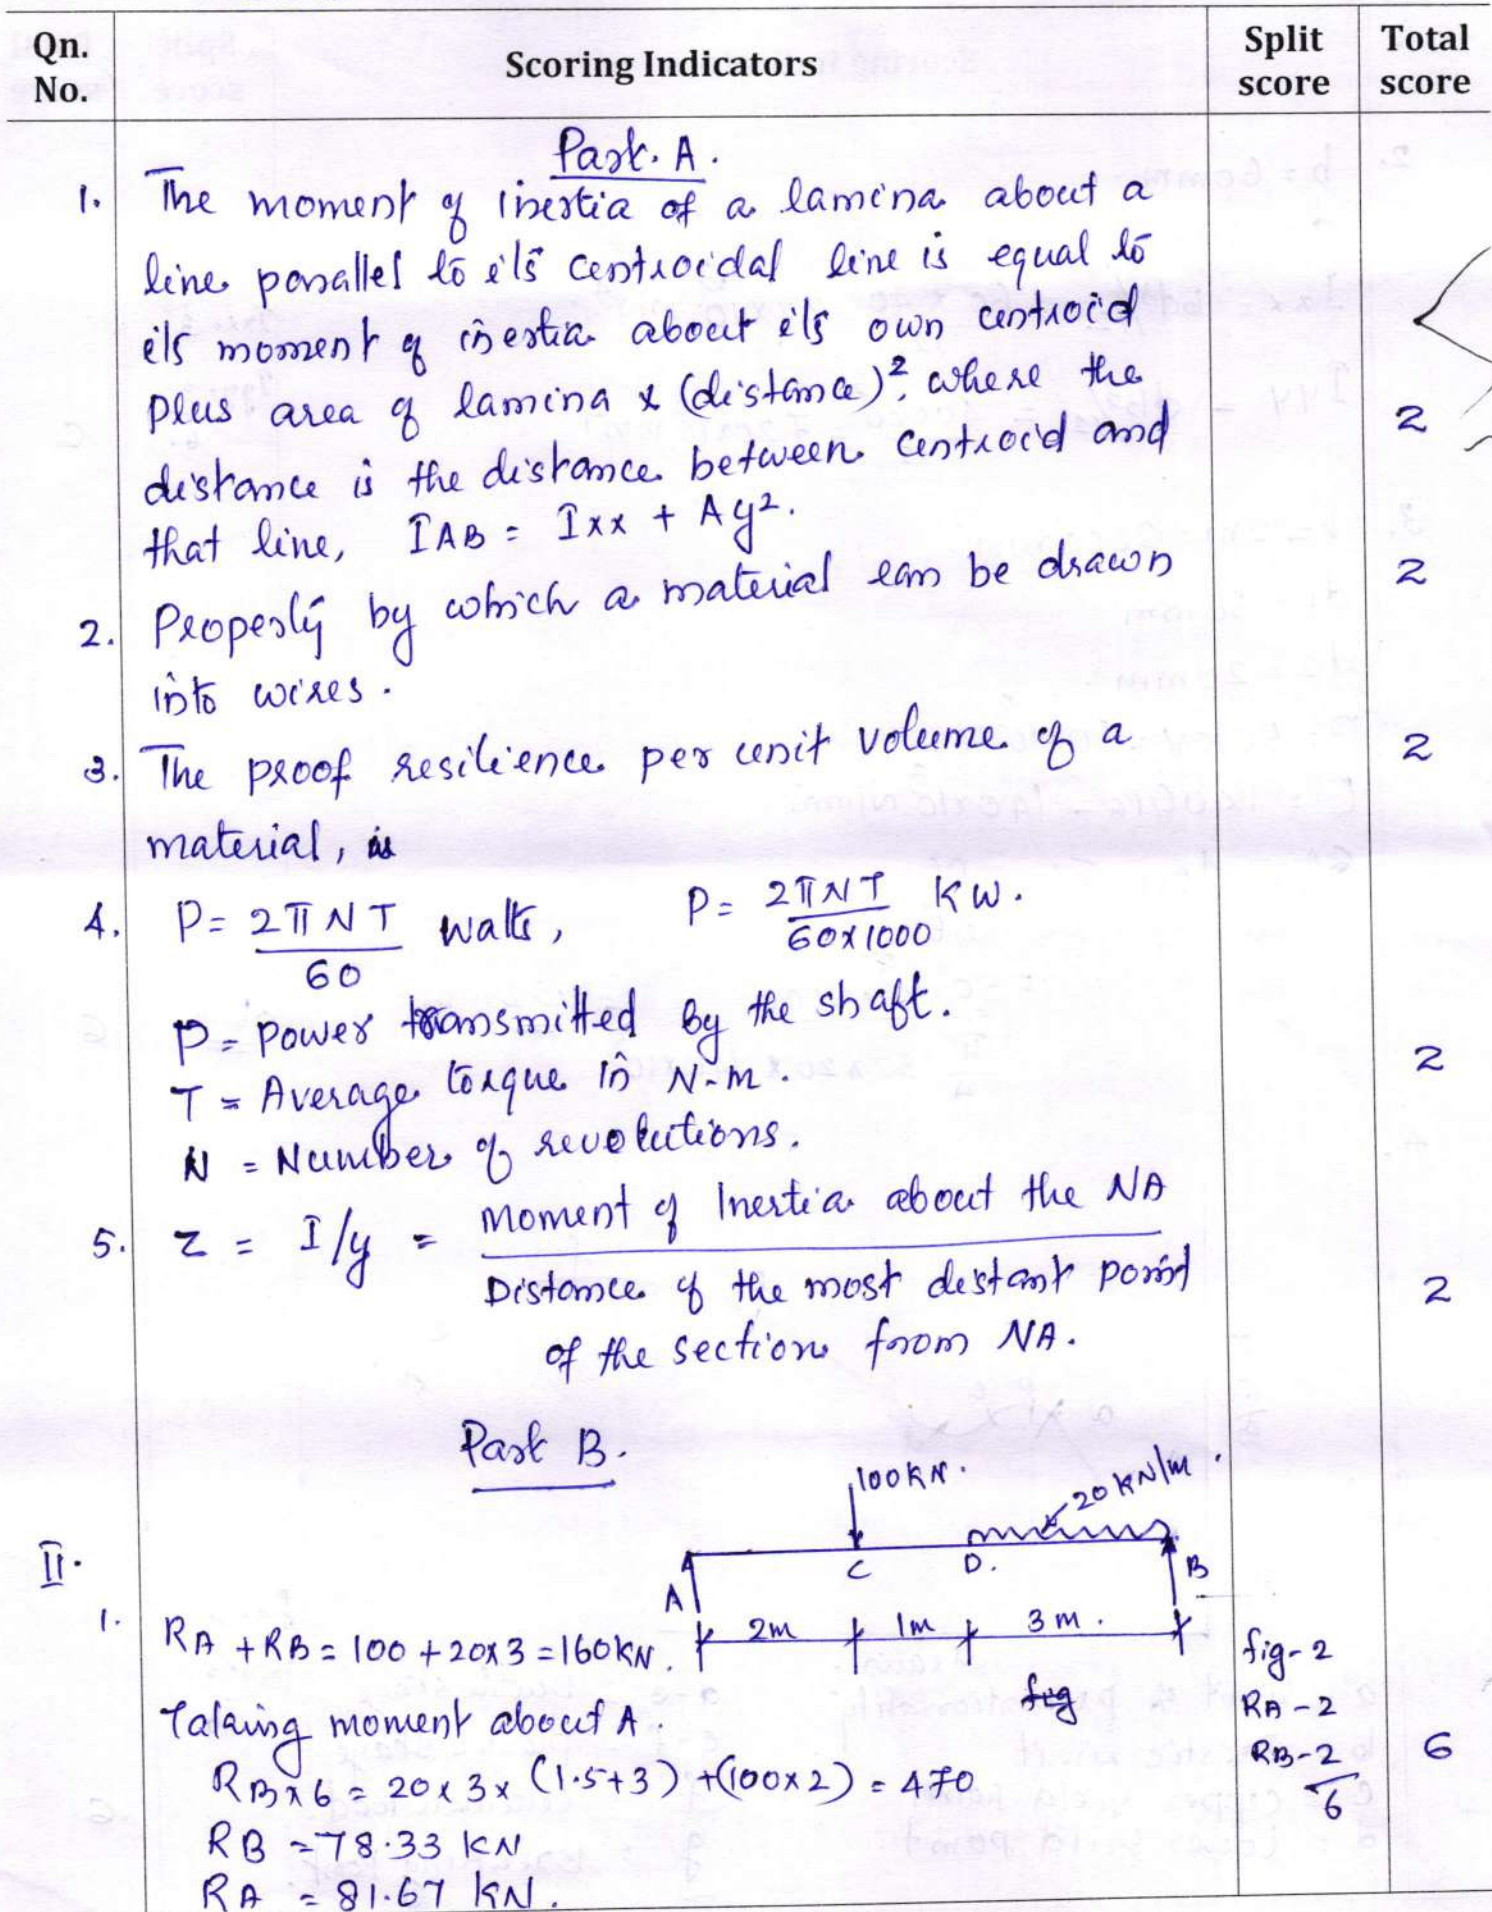 Qn. No. Scoring Indicators Split score Total score
Part. A.
1. The moment of inertia of a lamina about a
line parallel to it's centroidal line is equal to
it's moment of inertia about it's own centroid
plus area of lamina x (distance)², where the
distance is the distance between centroid and 2
that line, IAB = Ixx + Ay².
2. Property by which a material can be drawn 2
into wires.
3. The proof resilience per unit volume of a 2
material,
4. P = 2πNT/60 watts, P = 2πNT/60x1000 KW.
P = power transmitted by the shaft.
T = Average torque in N-m. 2
N = Number of revolutions.
5. Z = I/y = Moment of Inertia about the NA
Distance of the most distant point 2
of the section from NA.
Part B.
100KN. 20 KN/m
II. A C D. B
1. RA + RB = 100 + 20x3 = 160KN. 2m 1m 3m. fig-2
fig
Taking moment about A. RA-2
RB x 6 = 20 x 3 x (1.5+3) + (100x2) = 470 RB-2 6
6
RB = 78.33 KN
RA = 81.67 KN.